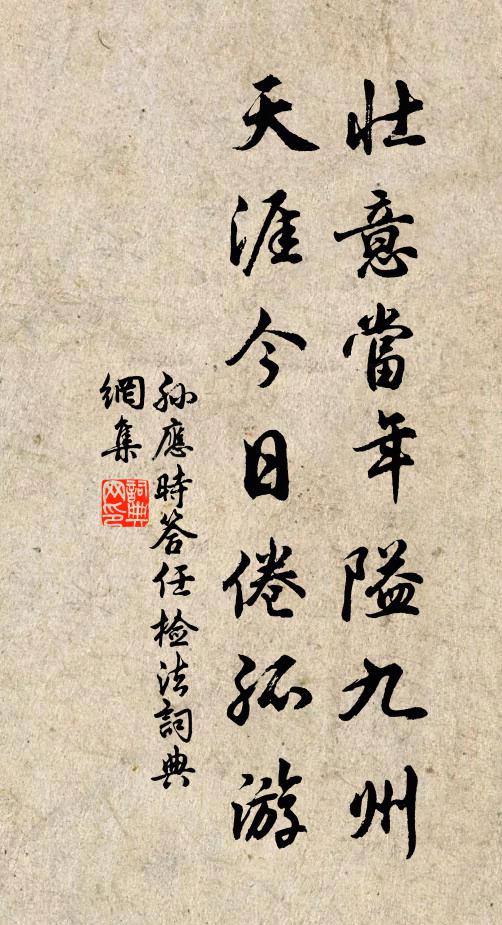 壯意當年隘九州
天涯今日倦孤游
孫應時答任檢法詞典
網集
詞典网印